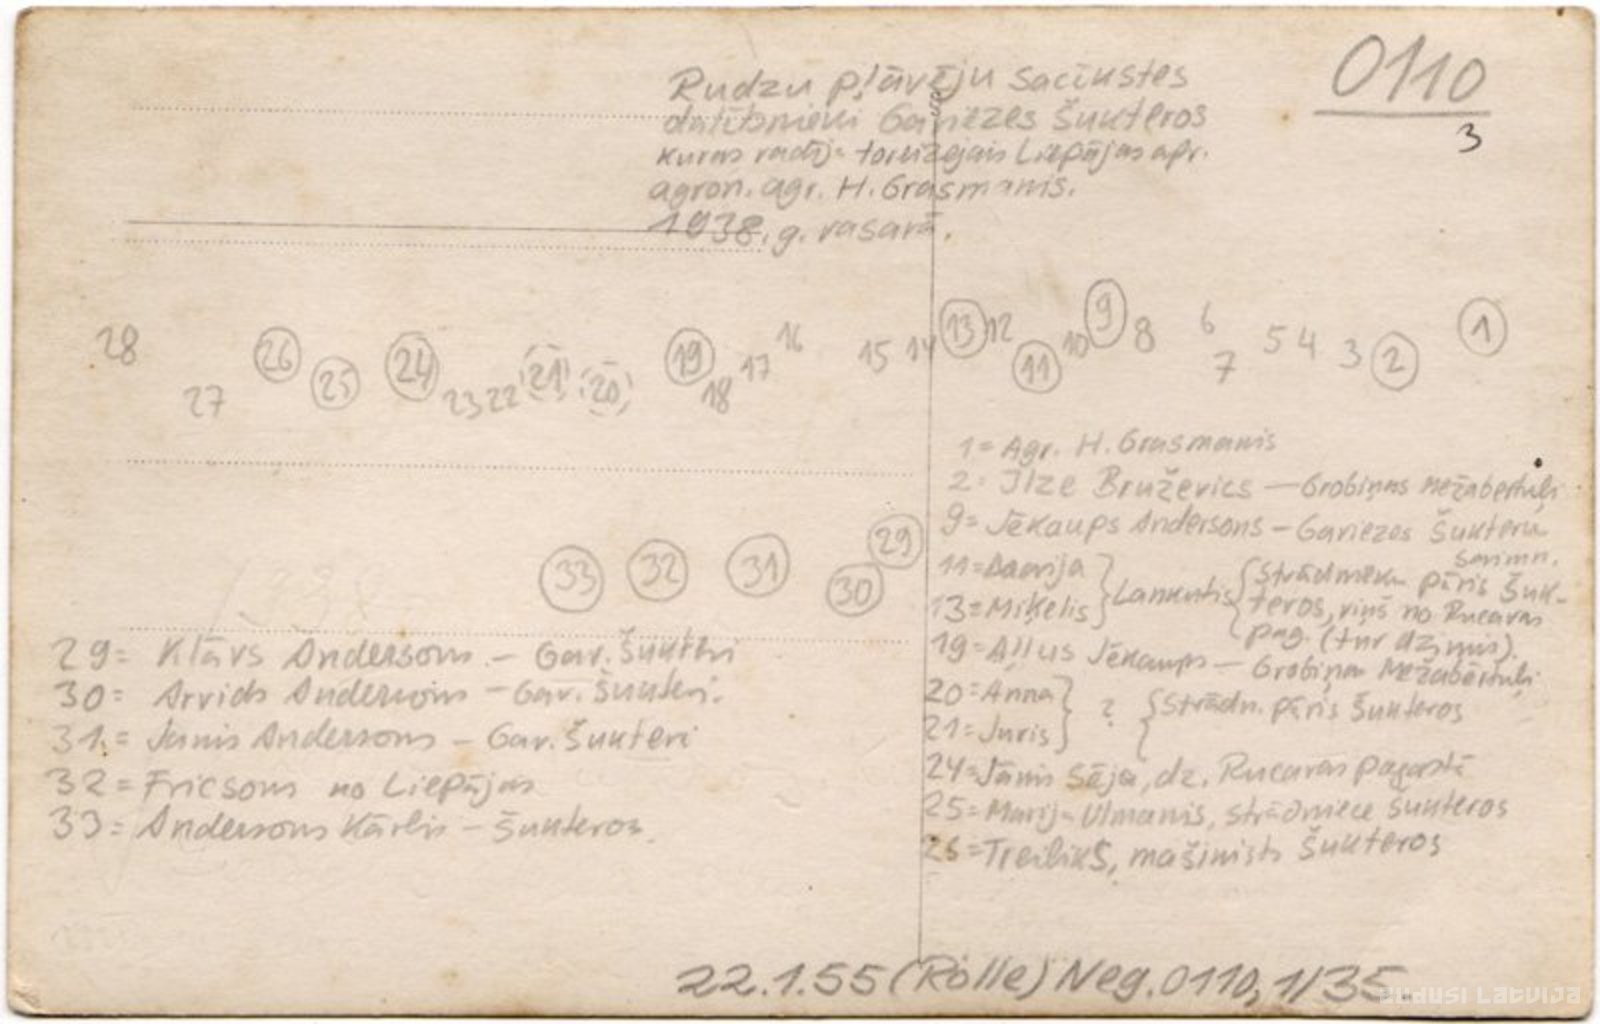 0110
3
Rudzu pļāvēju sacīkstes
dalībnieki Gaviezes Šukteros
kuras radīja toreizejais Liepājas apr.
agron. agr. H. Grasmanis.
1938. g. vasarā.
28 27 26 25 24 23 22 21 20 19 18 17 16 15 14 13 12 11 10 9 8 7 6 5 4 3 2 1
33 32 31 30 29
1 = Agr. H. Grasmanis
2 = Ilze Bruževics — Grobiņas Mežabertuļi
9 = Jēkaups Andersons — Gaviezes Šukteru
Saimn.
11 = Daarija } Lankutis { Strādnieku pāris Šuk-
13 = Miķelis } teros, viņš no Rucavas
pag. (tur dzimis).
19 = Aļļus Jēkaups — Grobiņas Mežabērtuļi
20 = Anna } ? { Strādn. pāris Šukteros
21 = Juris }
24 = Jānis Sāja, dz. Rucavas pagastā
25 = Marija Ulmanis, strādniece Šukteros
26 = Treiliks, mašinists Šukteros
29 = Klāvs Andersons — Gav. Šukteri
30 = Arvids Andersons — Gav. Šukteri.
31 = Janis Andersons — Gav. Šukteri
32 = Fricsons no Liepājas
33 = Andersons Kārlis — Šukteros.
22.1.55 (Rolle) Neg. 0110, 1/35.
zudusi Latvija